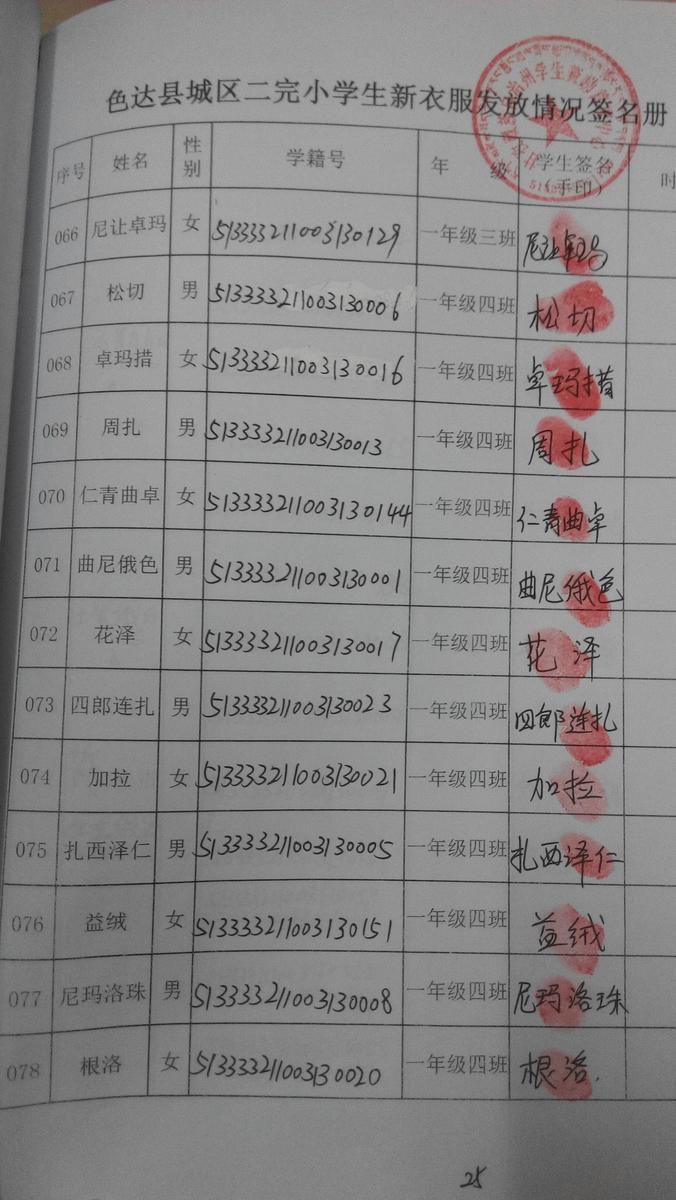 色达县城区二完小学生新衣服发放情况签名册
序号 姓名 性别 学籍号 年级 学生签名（手印） 时
066 尼让卓玛 女 513333211003130129 一年级三班 尼让卓玛
067 松切 男 513333211003130006 一年级四班 松切
068 卓玛措 女 513333211003130016 一年级四班 卓玛措
069 周扎 男 513333211003130013 一年级四班 周扎
070 仁青曲卓 女 513333211003130144 一年级四班 仁青曲卓
071 曲尼俄色 男 513333211003130001 一年级四班 曲尼俄色
072 花泽 女 513333211003130017 一年级四班 花泽
073 四郎连扎 男 513333211003130023 一年级四班 四郎连扎
074 加拉 女 513333211003130021 一年级四班 加拉
075 扎西泽仁 男 513333211003130005 一年级四班 扎西泽仁
076 益绒 女 513333211003130151 一年级四班 益绒
077 尼玛洛珠 男 513333211003130008 一年级四班 尼玛洛珠
078 根洛 女 513333211003130020 一年级四班 根洛.
25